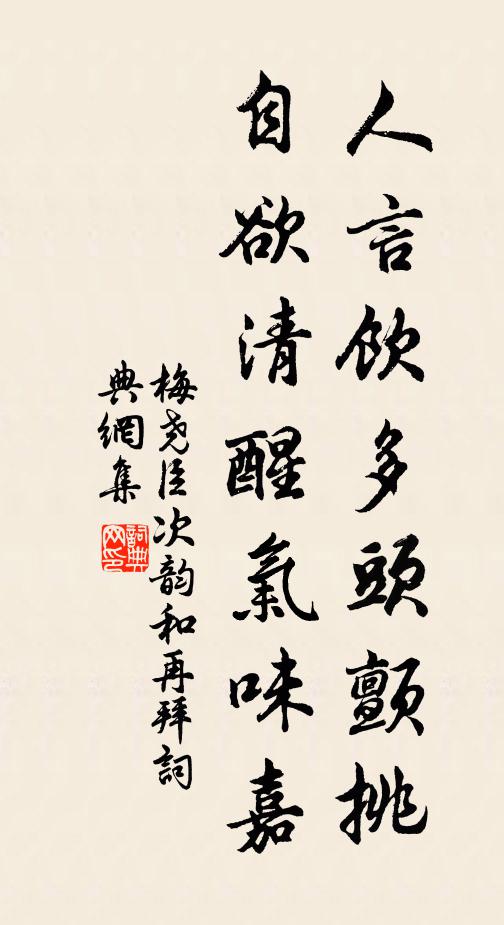 人言飲多頭顫挑
自欲清醒氣味嘉
梅堯臣次韵和再拜詞
典網集
詞典網印